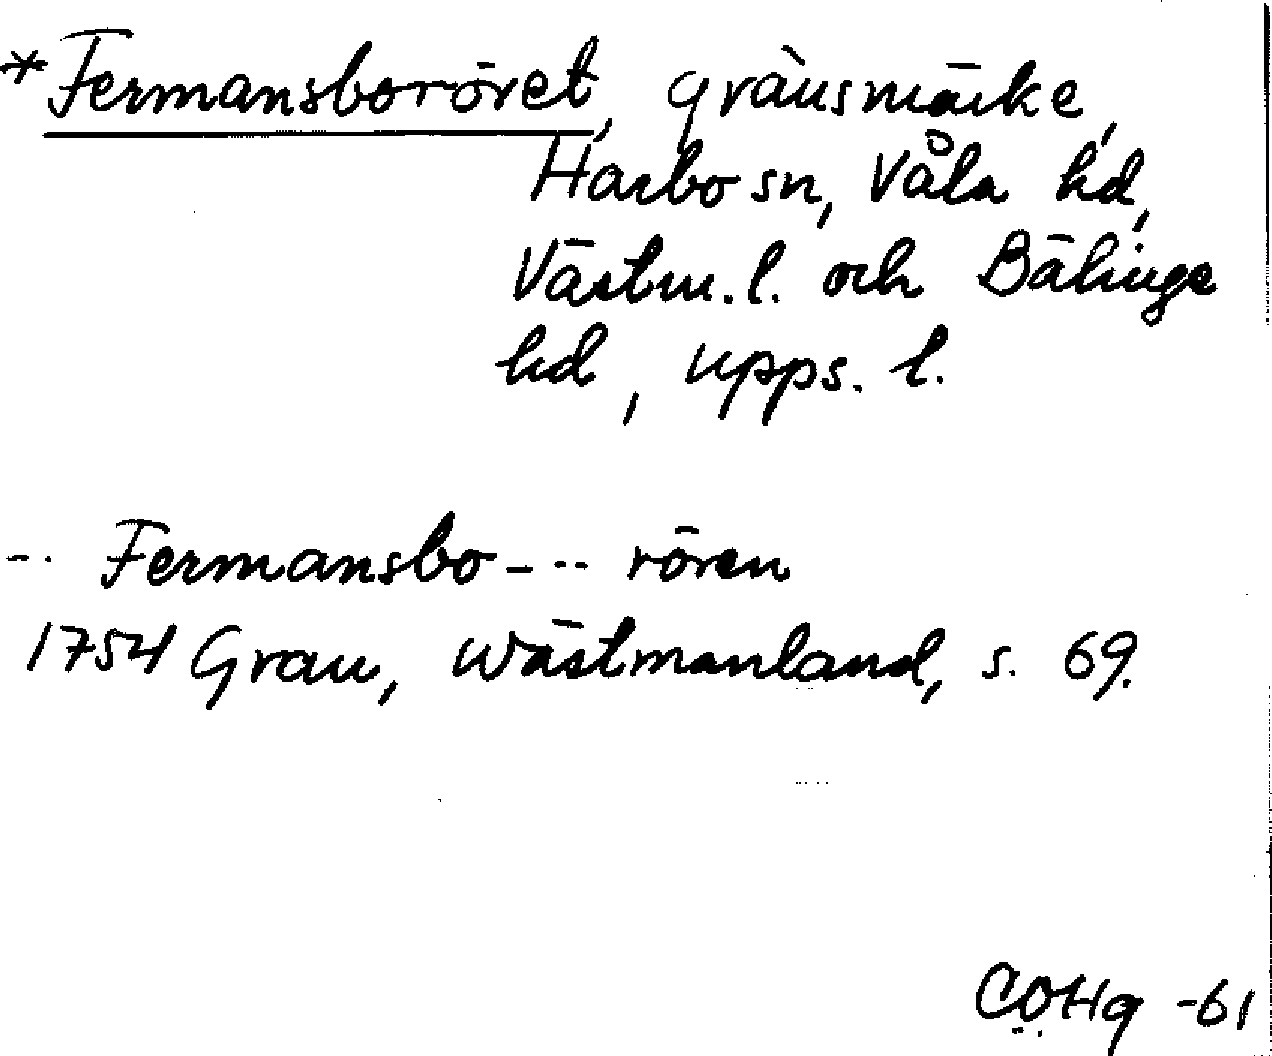 *Fermansboröret, gränsmärke,
Harbo sn, Våla hd,
Västm. l. och Bälinge
hd, Upps. l.
-- Fermansbo --- rören
1754 Grau, Wästmanland, s. 69.
COHg -61